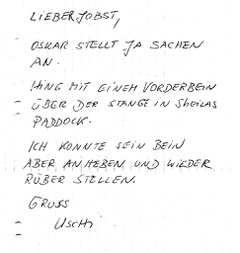 LIEBER JOBST,
OSKAR STELLT JA SACHEN
AN.
HING MIT EINEM VORDERBEIN
ÜBER DER STANGE IN SHEILAS
PADDOCK.
ICH KONNTE SEIN BEIN
ABER ANHEBEN UND WIEDER
RÜBER STELLEN.
GRUSS
USCHI